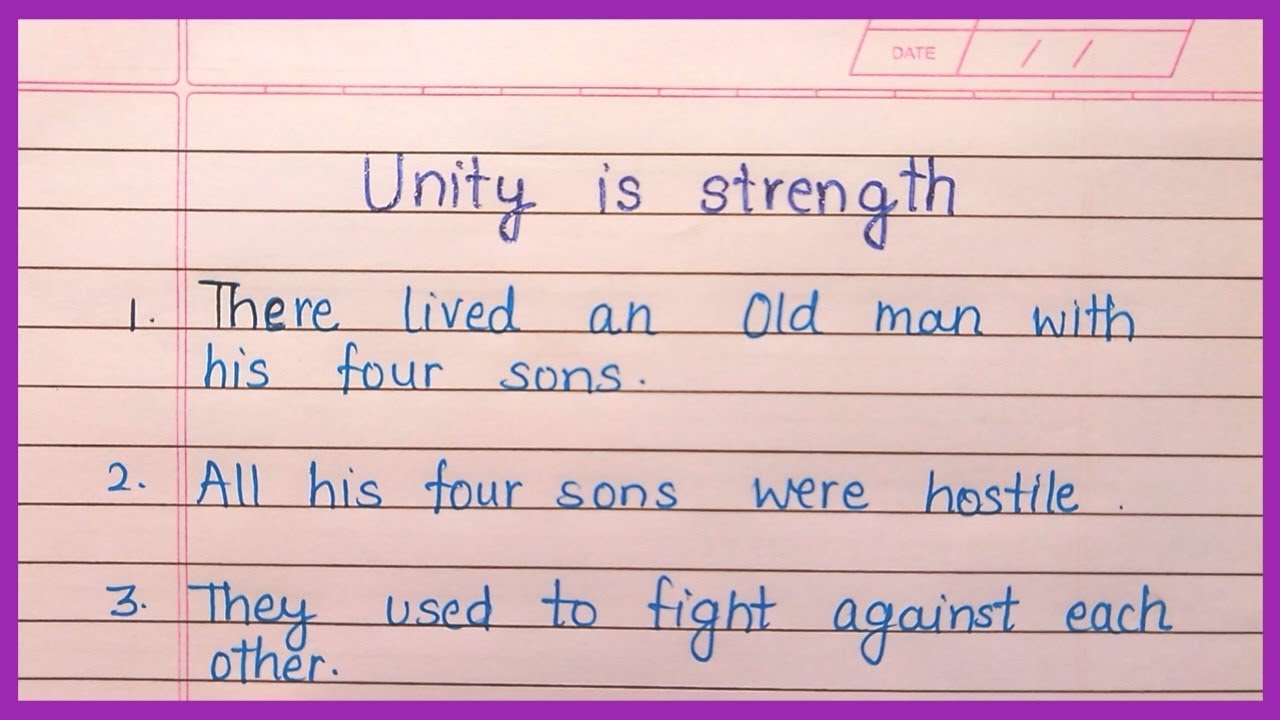 DATE / /
Unity is strength
1. There lived an Old man with
his four sons.
2. All his four sons were hostile.
3. They used to fight against each
other.